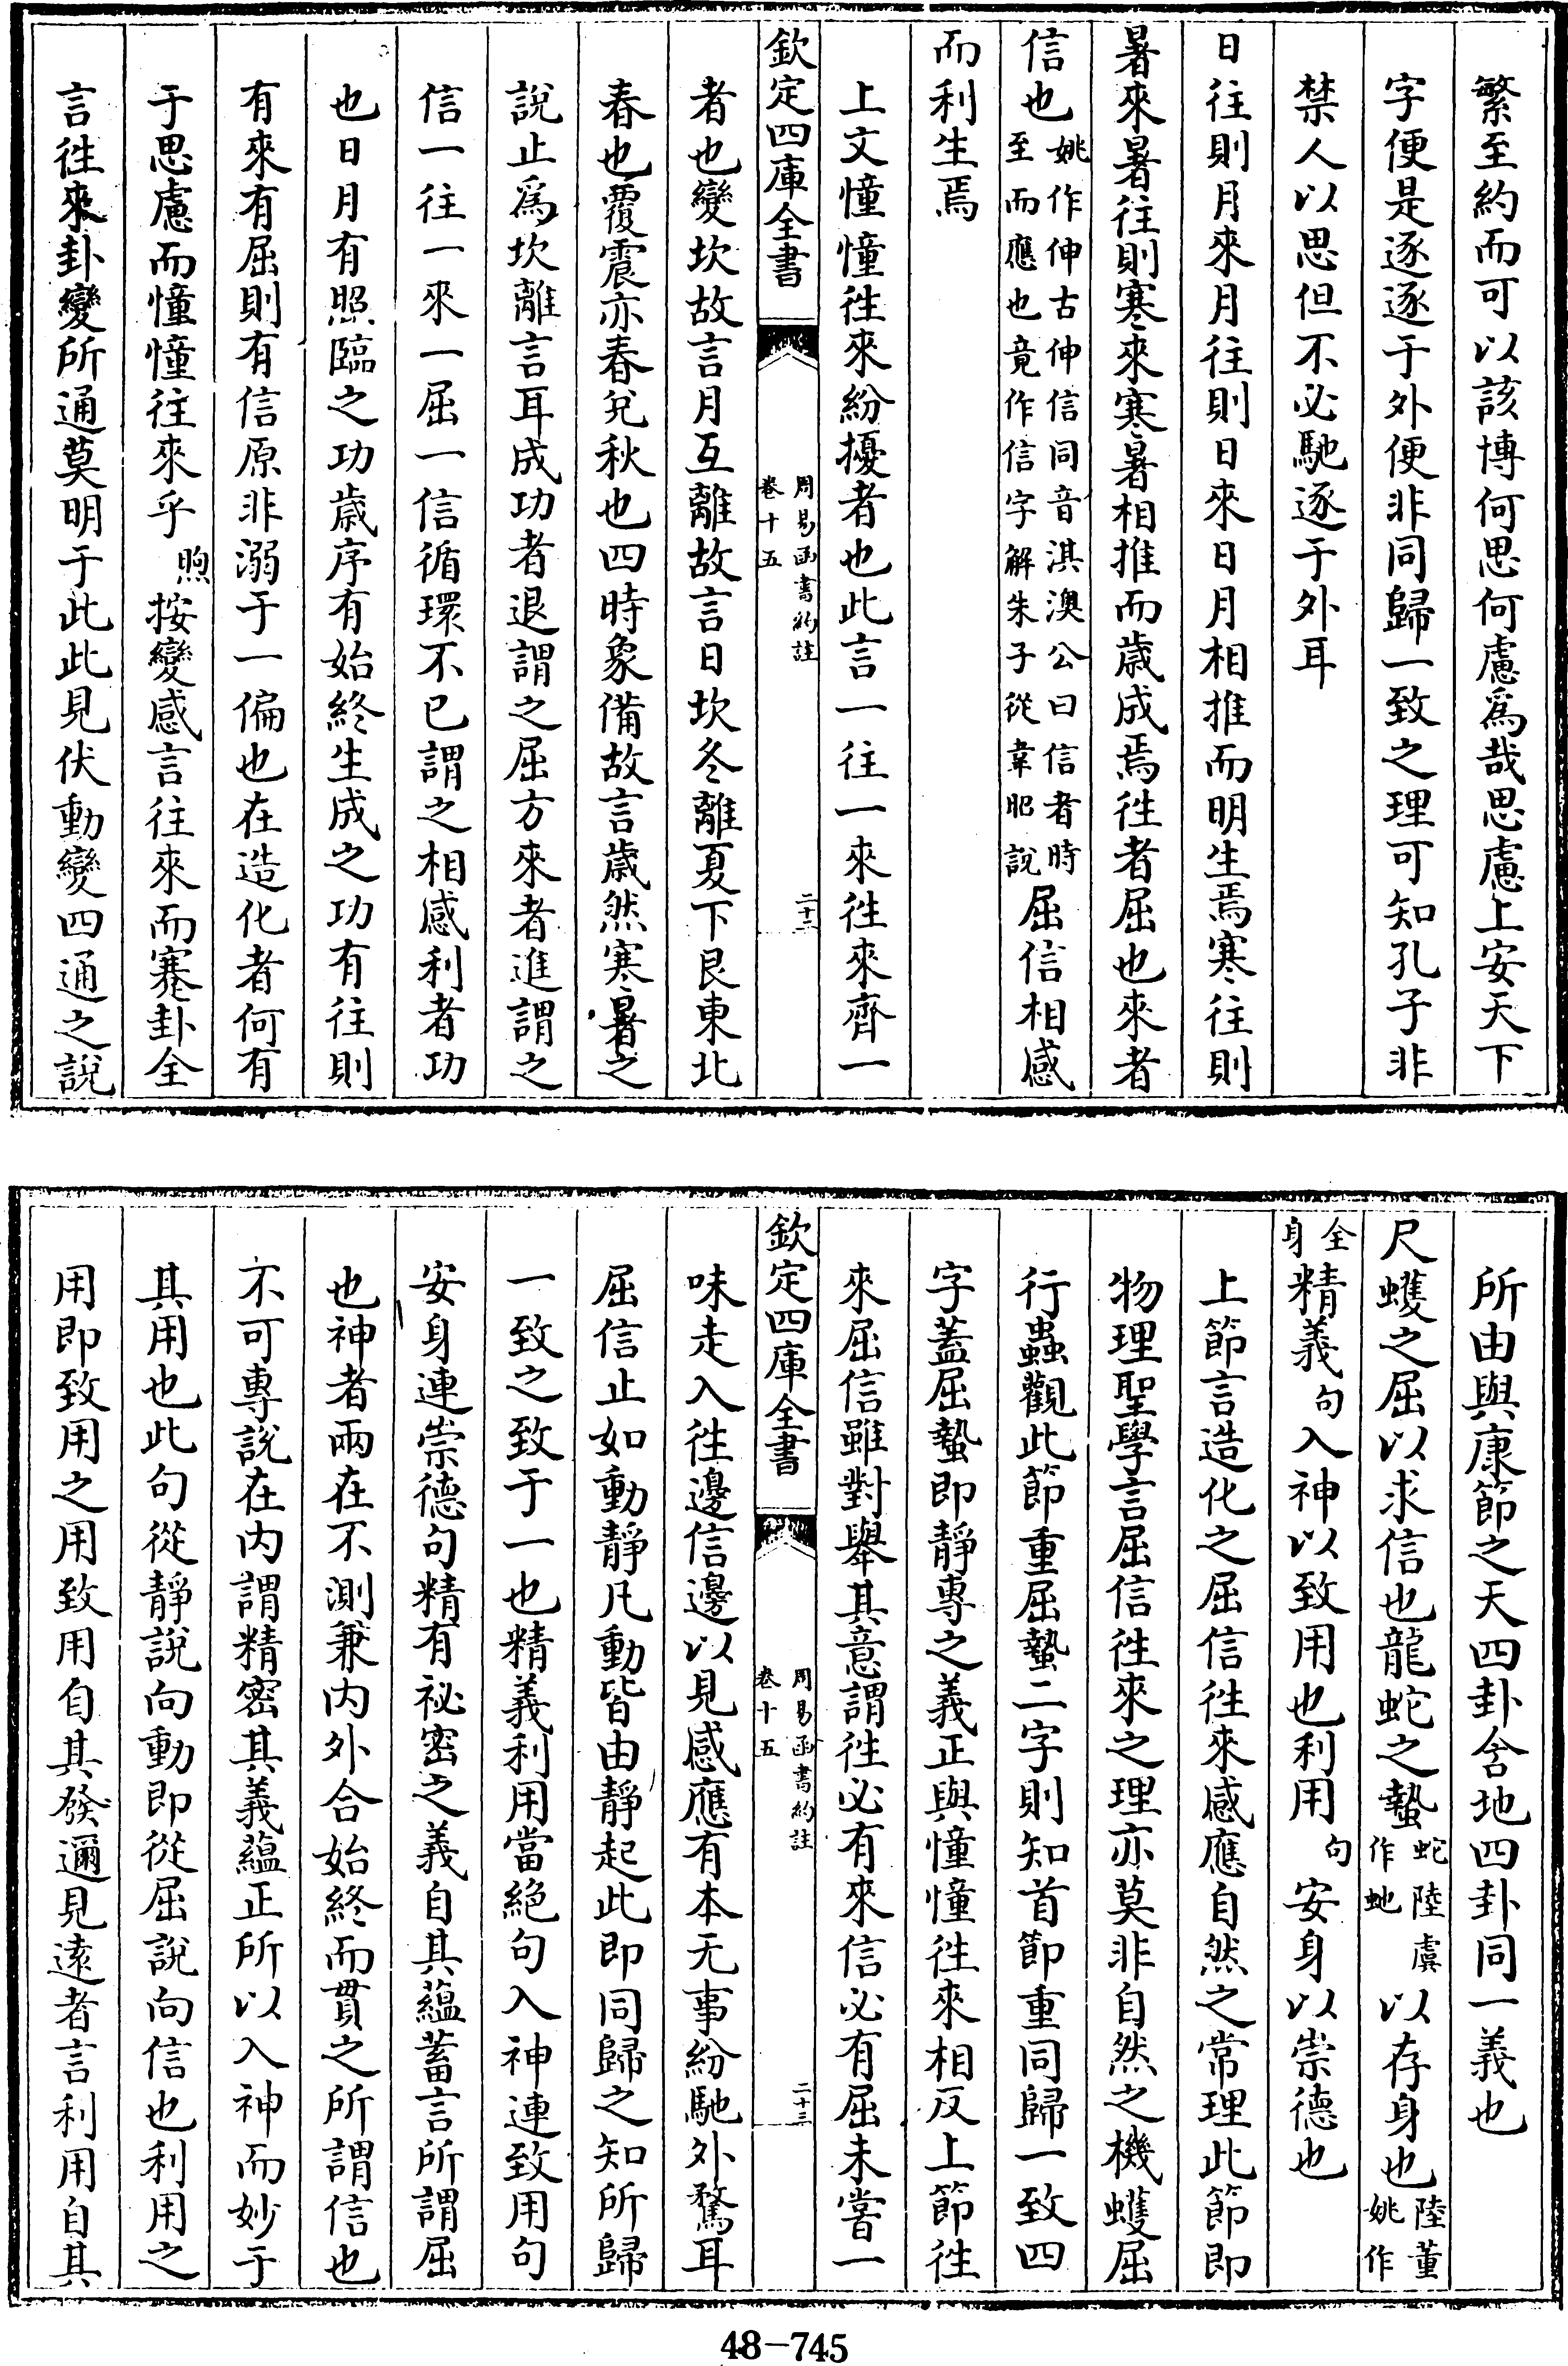 繁至約而可以該博何思何慮爲哉思慮上安天下
字便是逐逐于外便非同歸一致之理可知孔子非
禁人以思但不必馳逐于外耳
日往則月來月往則日來日月相推而明生焉寒往則
暑來暑往則寒來寒暑相推而歲成焉徃者屈也來者
信也姚作伸古伸信同音淇澳公曰信者時至而應也竟作信字解朱子從韋昭說屈信相感
而利生焉
上文憧憧徃來紛擾者也此言一往一來徃來齊一
欽定四庫全書
周易函書約註
卷十五
二十二
者也變坎故言月互離故言日坎冬離夏下艮東北
春也覆震亦春兌秋也四時象備故言歲然寒暑之
說止爲坎離言耳成功者退謂之屈方來者進謂之
信一往一來一屈一信循環不已謂之相感利者功
也日月有照臨之功歲序有始終生成之功有往則
有來有屈則有信原非溺于一偏也在造化者何有
于思慮而憧憧往來乎煦按變感言往來而蹇卦全
言徃來卦變所通莫明于此此見伏動變四通之說
所由與康節之天四卦含地四卦同一義也
尺蠖之屈以求信也龍蛇之蟄蛇陸虞作虵以存身也陸董姚作
全身精義句入神以致用也利用句安身以崇德也
上節言造化之屈信徃來感應自然之常理此節即
物理聖學言屈信徃來之理亦莫非自然之機蠖屈
行蟲觀此節重屈蟄二字則知首節重同歸一致四
字蓋屈蟄即靜專之義正與憧憧徃來相反上節徃
來屈信雖對舉其意謂徃必有來信必有屈未嘗一
欽定四庫全書
周易函書約註
卷十五
二十三
味走入徃邊信邊以見感應有本无事紛馳外騖耳
屈信止如動靜凡動皆由靜起此即同歸之知所歸
一致之致于一也精義利用當絕句入神連致用句
安身連崇德句精有祕密之義自其蘊蓄言所謂屈
也神者兩在不測兼內外合始終而貫之所謂信也
不可專說在內謂精密其義蘊正所以入神而妙于
其用也此句從靜說向動即從屈說向信也利用之
用即致用之用致用自其發邇見遠者言利用自其
48-745